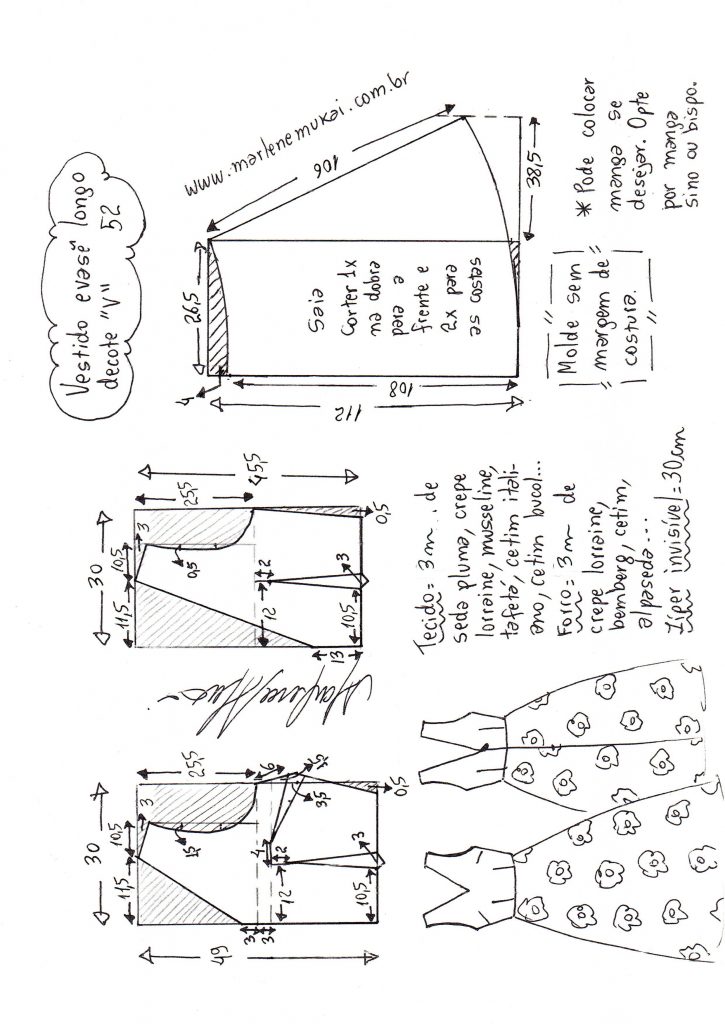 Vestido evasê longo
decote "V" 52
www.marlenemukai.com.br
30
11,5
10,5
3
25,5
1,5
49
6
4
2
3,5
12
3
3
10,5
3
0,5
30
11,5
10,5
3
25,5
45,5
0,5
12
2
13
10,5
3
0,5
26,5
4
112
108
106
38,5
Saia
Corter 1x
na dobra
para a
frente e
2x para
as costas
Tecido = 3m.. de
seda pluma, crepe
lorraine, musseline,
tafetá, cetim itáli-
ano, cetim bucol...
Forro = 3m de
crepe lorraine,
bemberg, cetim,
alpaseda...
Zíper invisível = 30cm
Molde sem
margem de
costura.
* Pode colocar
manga se
desejar. Opte
por manga
sino ou bispo.